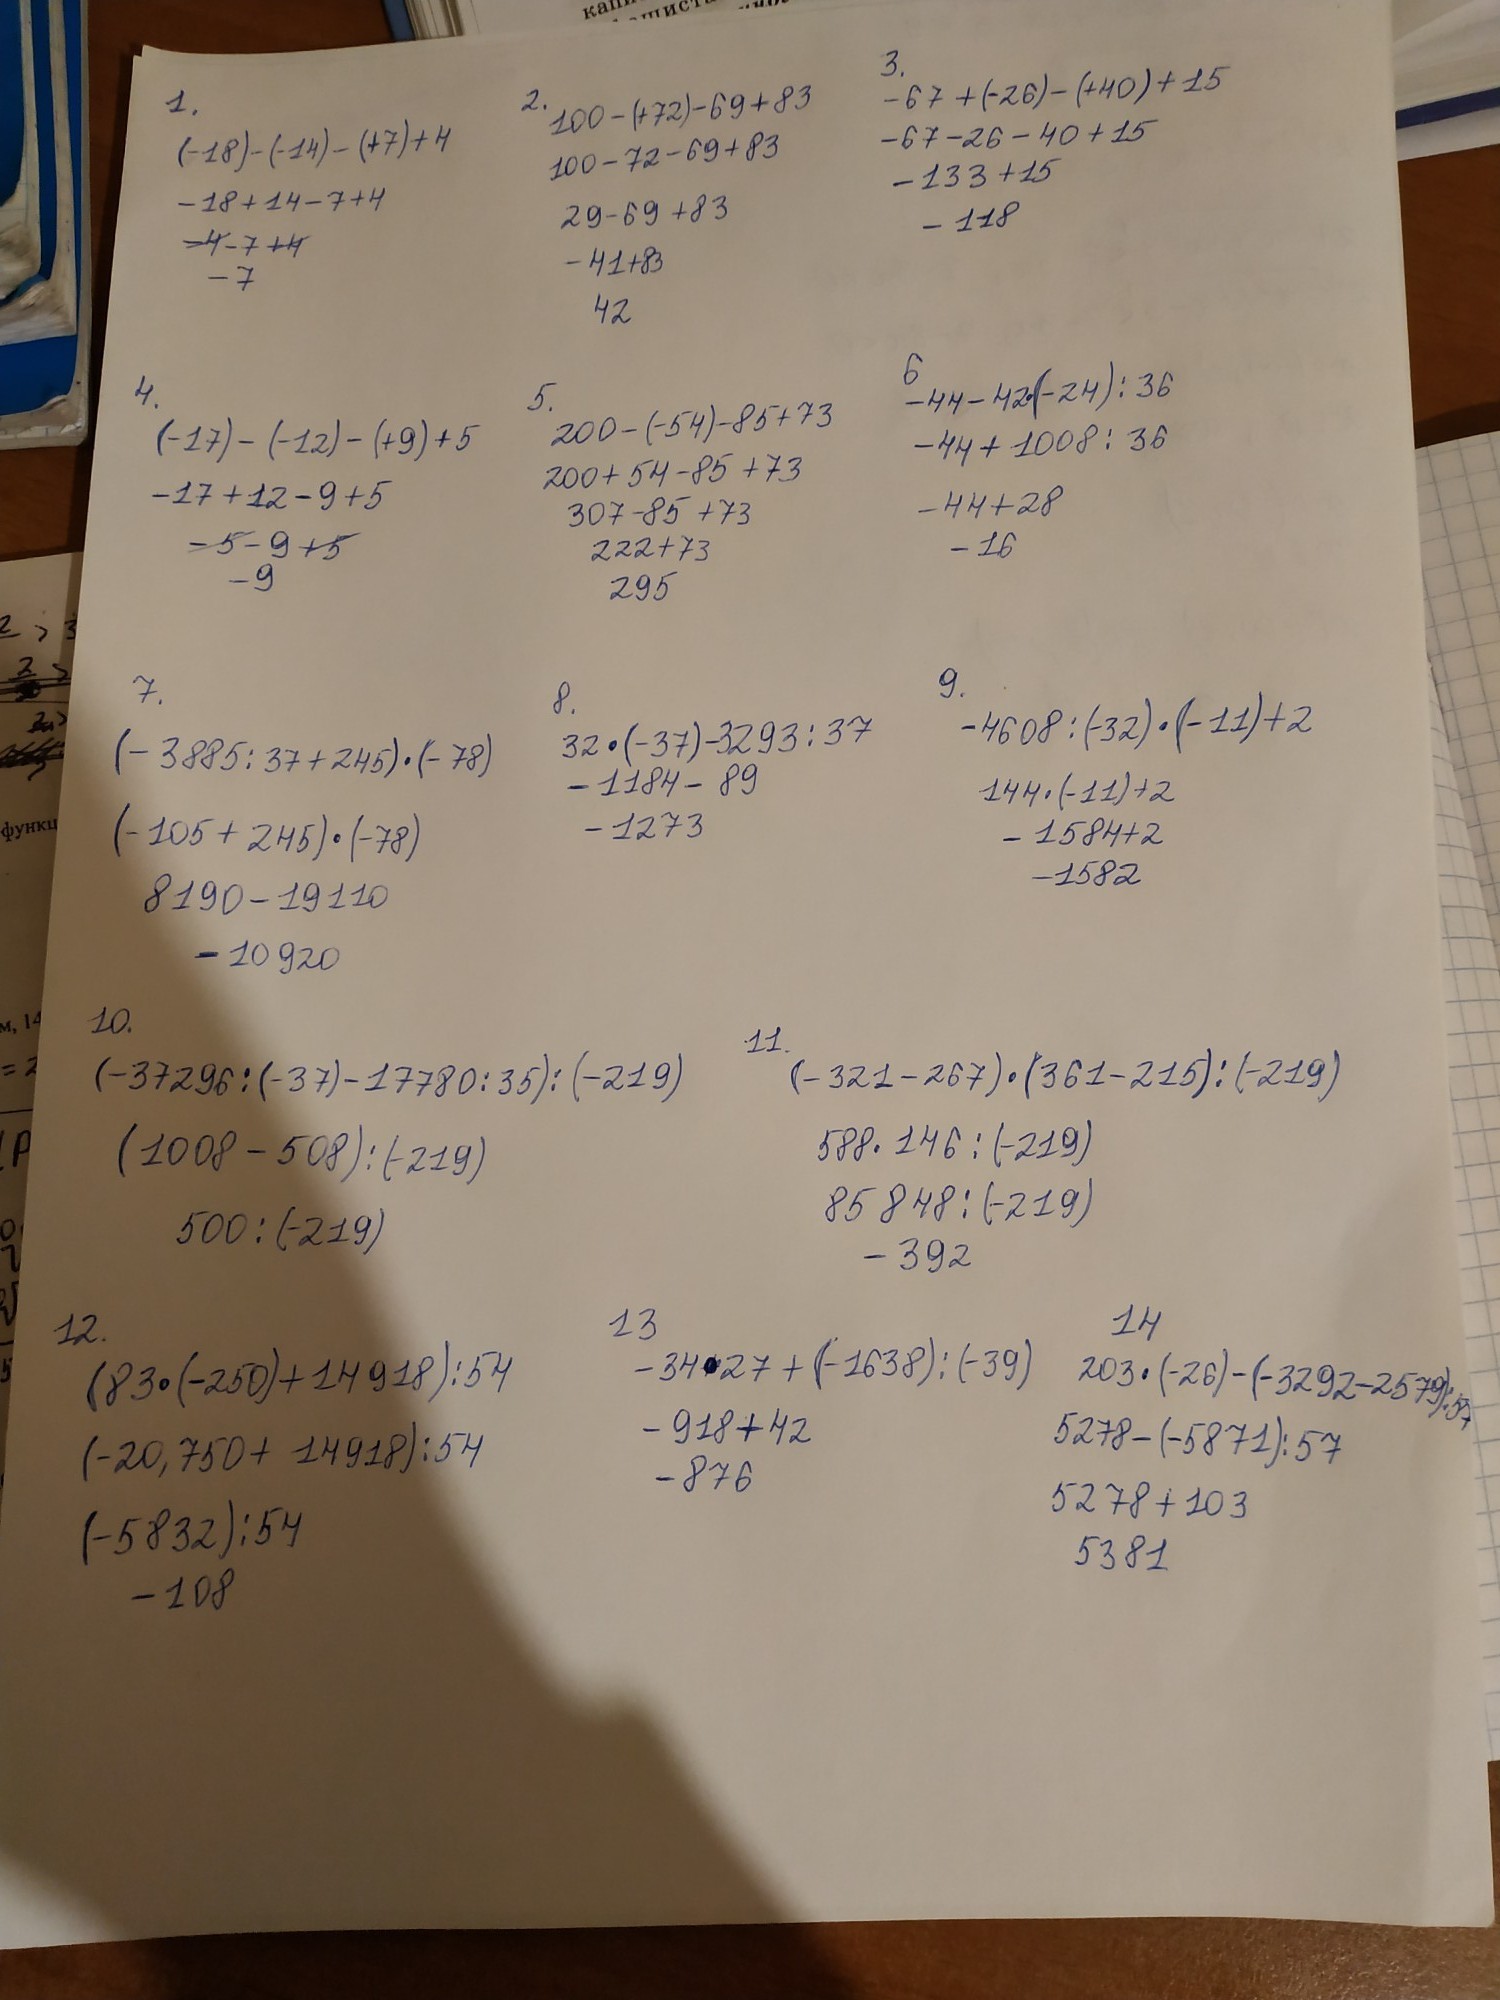 1.
(-18)-(-14)-(+7)+4
-18+14-7+4
-4-7+4
-7
2.
100-(+72)-69+83
100-72-69+83
29-69+83
-41+83
42
3.
-67+(-26)-(+40)+15
-67-26-40+15
-133+15
-118
4.
(-17)-(-12)-(+9)+5
-17+12-9+5
-5-9+5
-9
5.
200-(-54)-85+73
200+54-85+73
307-85+73
222+73
295
6
-44-42•(-24):36
-44+1008:36
-44+28
-16
7.
(-3885:37+245)•(-78)
(-105+245)•(-78)
8190-19110
-10920
8.
32•(-37)-3293:37
-1184-89
-1273
9.
-4608:(-32)•(-11)+2
144•(-11)+2
-1584+2
-1582
10.
(-37296:(-37)-17780:35):(-219)
(1008-508):(-219)
500:(-219)
11.
(-321-267)•(361-215):(-219)
588•146:(-219)
85848:(-219)
-392
12.
(83•(-250)+14918):54
(-20,750+14918):54
(-5832):54
-108
13
-34•27+(-1638):(-39)
-918+42
-876
14
203•(-26)-(-3292-2579):57
5278-(-5871):57
5278+103
5381
функц
м, 14
= 2